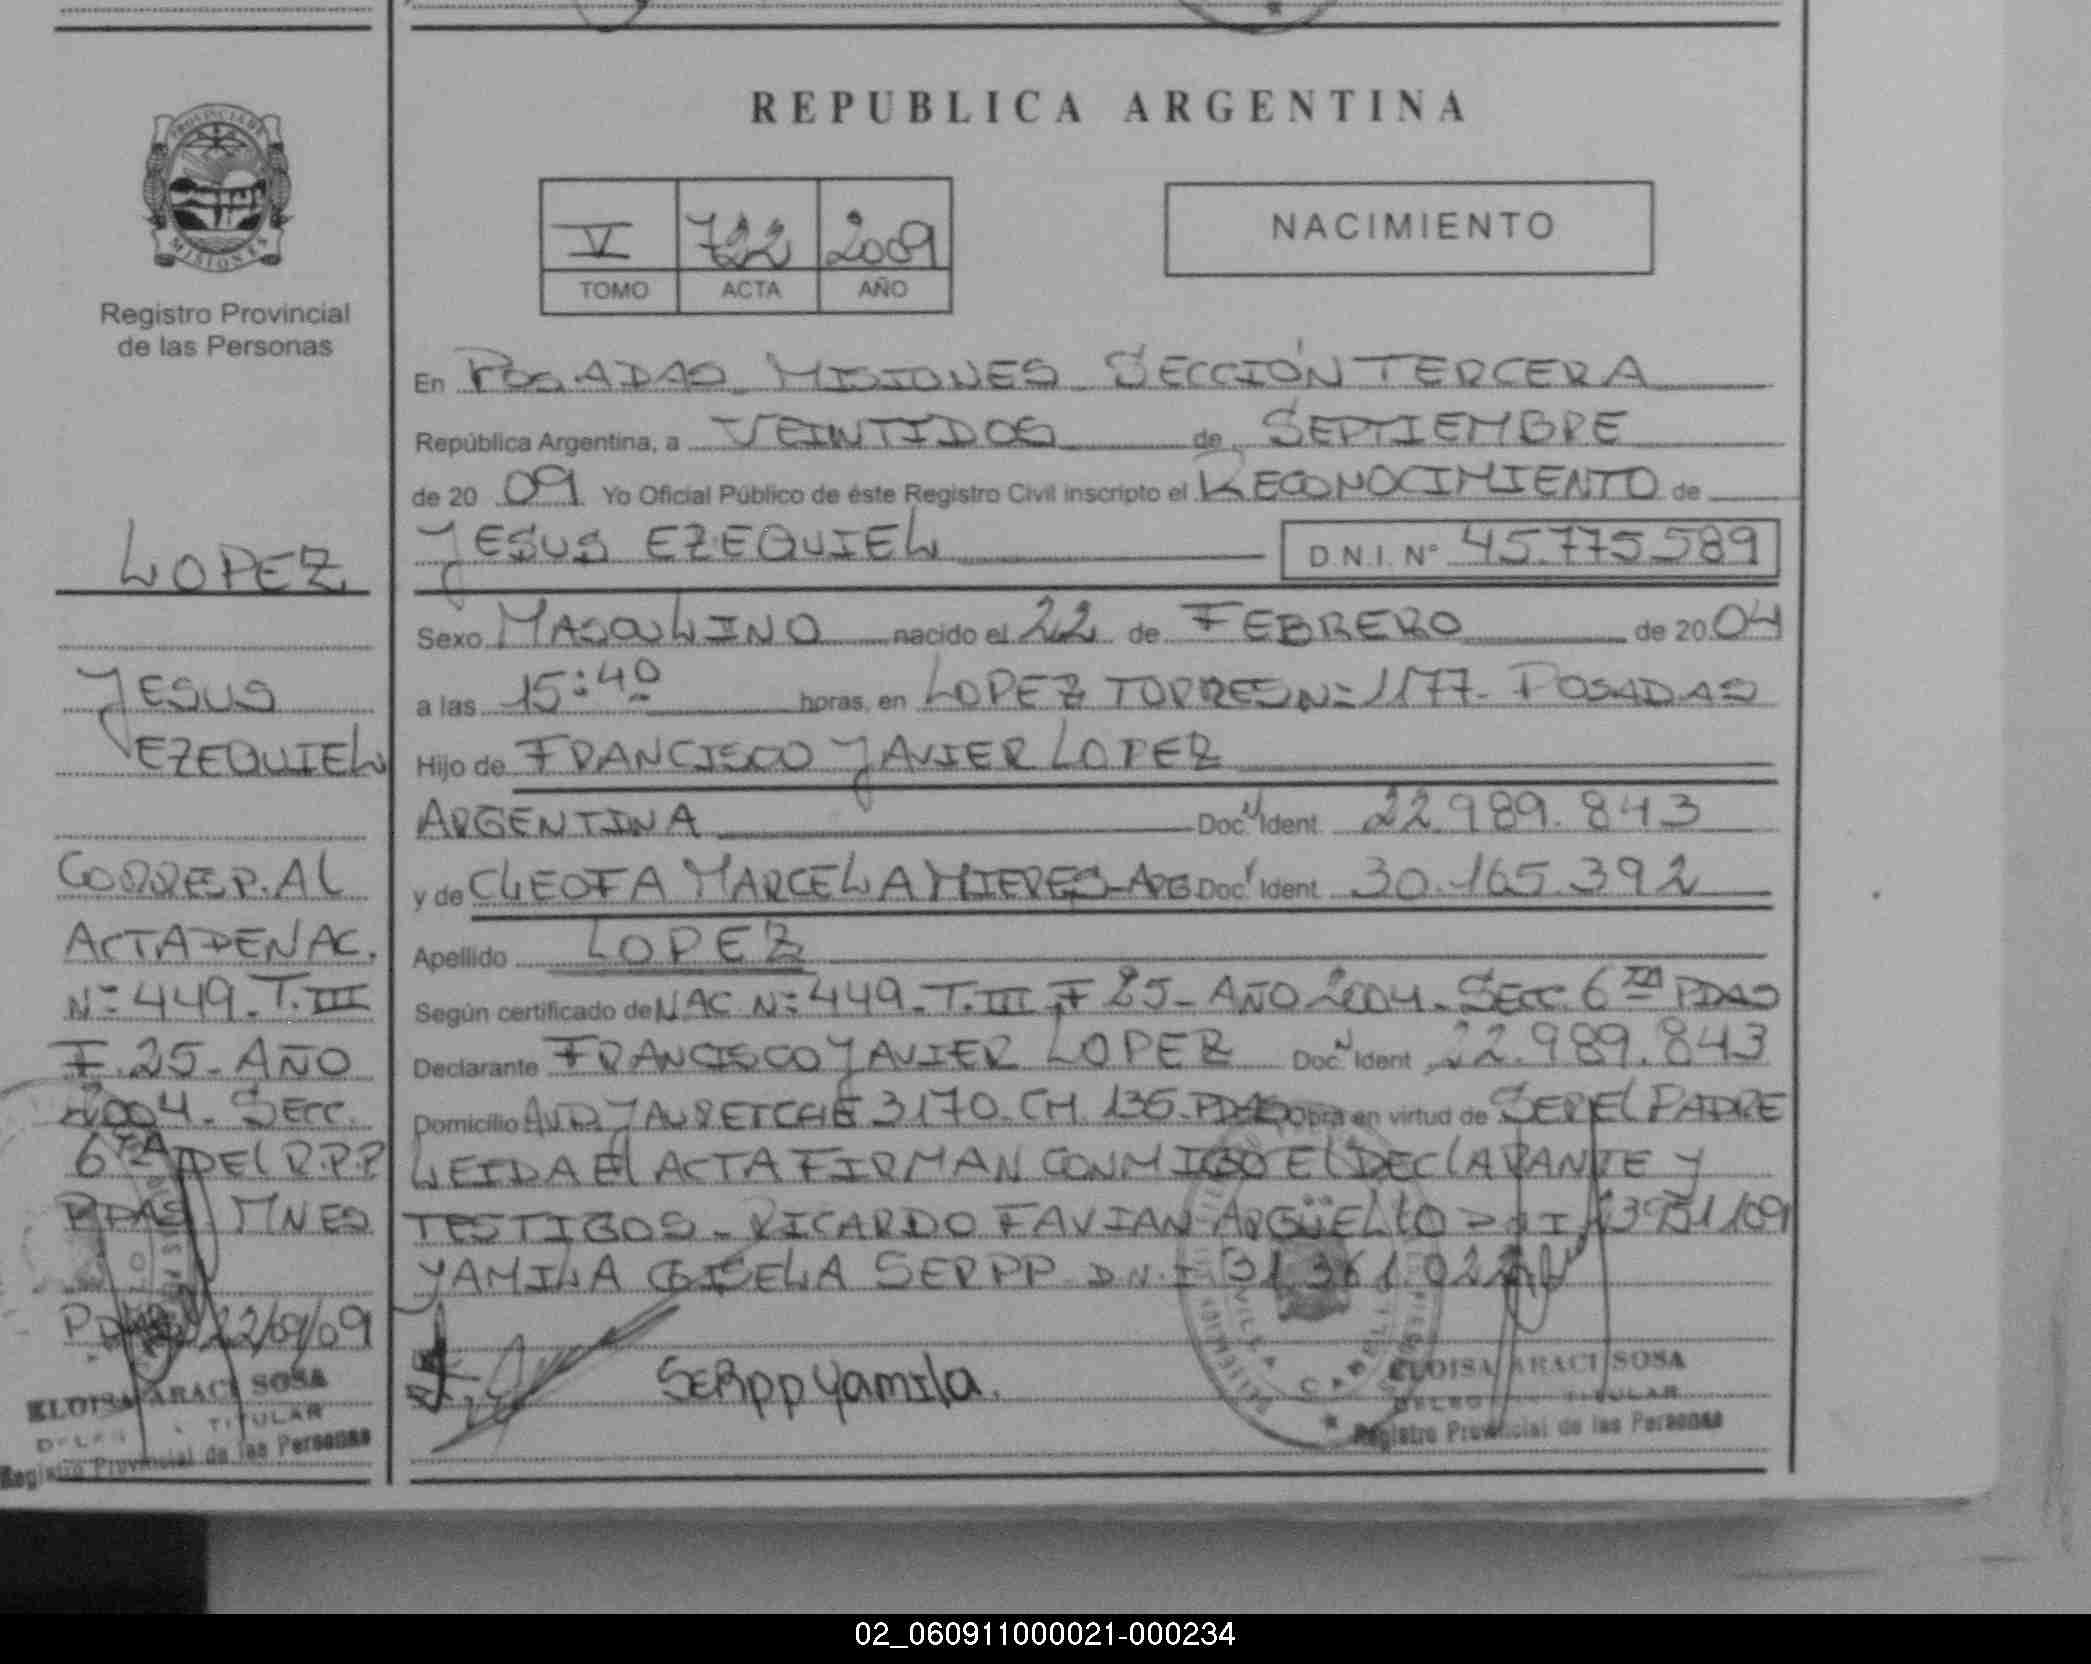 REPUBLICA ARGENTINA
PROVINCIA DE
MISIONES
Registro Provincial
de las Personas
V 722 2009
TOMO ACTA AÑO
NACIMIENTO
En POSADAS MISIONES SECCIÓN TERCERA
República Argentina, a VEINTIDOS de SEPTIEMBRE
de 20 09 Yo Oficial Público de éste Registro Civil inscripto el RECONOCIMIENTO de
JESUS EZEQUIEL D.N.I. Nº 45.775.589
Sexo MASCULINO nacido el 22 de FEBRERO de 20 04
a las 15:40 horas, en LOPEZ TORRES Nº 1177. POSADAS
Hijo de FRANCISCO JAVIER LOPEZ
ARGENTINA Doc. Ident 22.989.843
y de CLEOFA MARCELA MIERES-ARG Doc. Ident 30.165.392
Apellido LOPEZ
Según certificado de NAC Nº 449. T. III F 25- AÑO 2004. SECC. 6TA PDAS
Declarante FRANCISCO JAVIER LOPEZ Doc. Ident 22.989.843
Domicilio AVD JAURETCHE 3170. CH. 135. PDAS Obra en virtud de SER EL PADRE
LEIDA EL ACTA FIRMAN CONMIGO EL DECLARANTE Y
TESTIGOS - RICARDO FAVIAN ARGÜELLO
YAMILA GISELA SERPP D.N.I
SERPP Yamila.
ELOISA ARACI SOSA
TITULAR
Registro Provincial de las Personas
LOPEZ
JESUS
EZEQUIEL
CORRESP. AL
ACTA DE NAC.
Nº 449. T. III
F. 25- AÑO
2004. SECC.
6TA DEL R.P.P
PDAS MNES
PDAS 22/09/09
ELOISA ARACI SOSA
TITULAR
Registro Provincial de las Personas
02_060911000021-000234